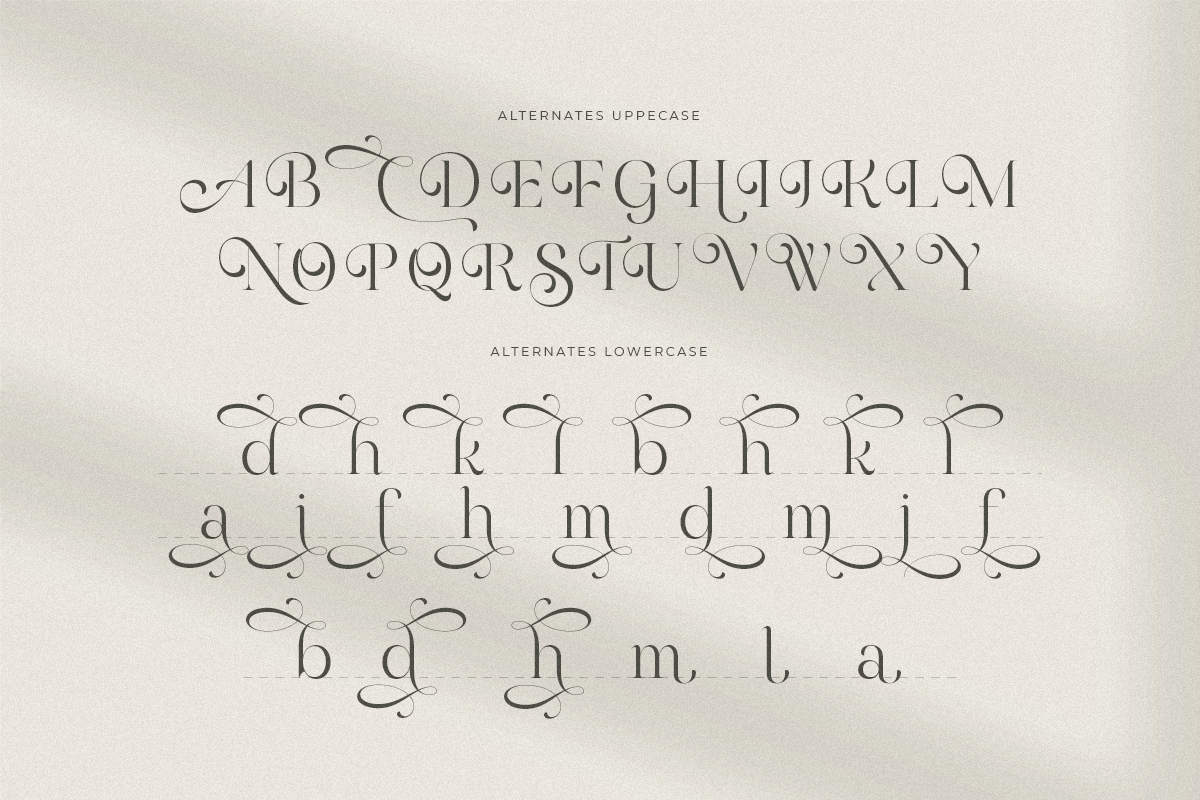 ALTERNATES UPPECASE
ABCDEFGHIJKLM
NOPQRSTUVWXY
ALTERNATES LOWERCASE
d h k l b h k l
a i f h m d m j f
b d h m l a